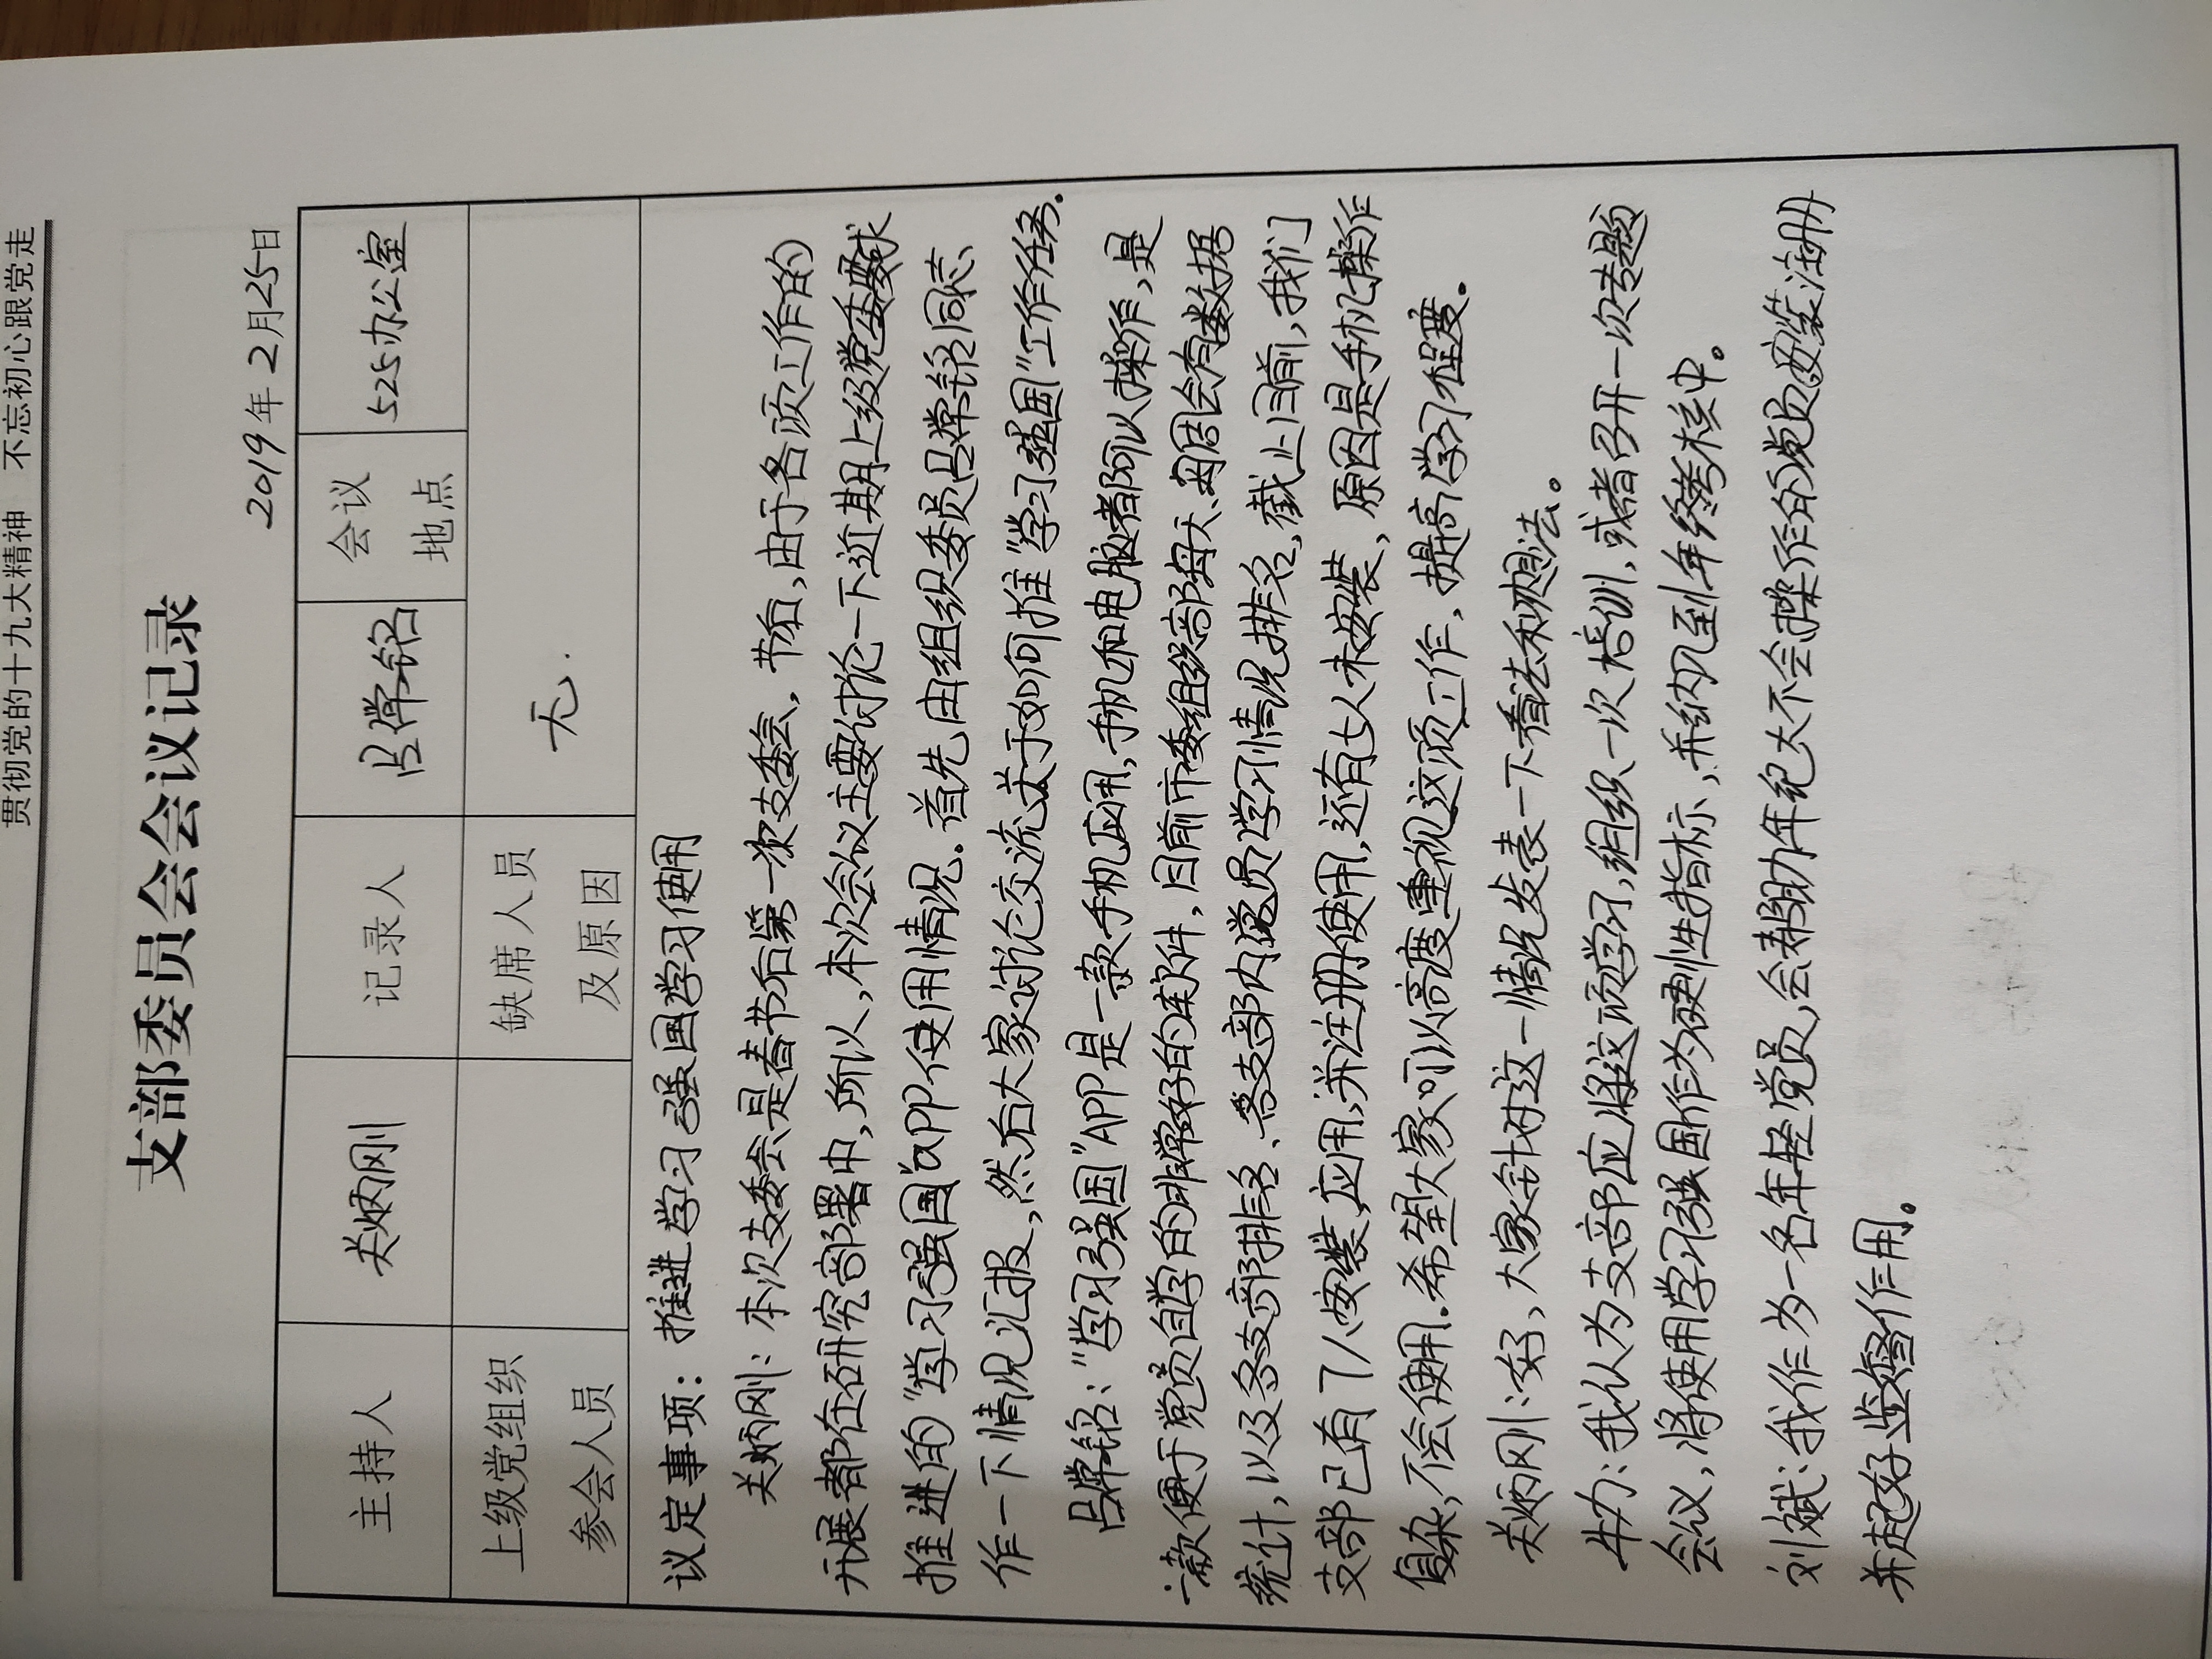 贯彻党的十九大精神 不忘初心跟党走
支部委员会会议记录
2019年2月25日
主持人 关炳刚 记录人 吕常铭 会议地点 525办公室
上级党组织参会人员 缺席人员及原因 无.
议定事项：推进学习强国学习使用
关炳刚：本次支委会是春节后第一次支委会，节后，由于各项工作的
开展都在研究部署中，所以，本次会议主要讨论一下近期上级党委要求
推进的“学习强国”APP使用情况.首先由组织委员吕常铭同志
作一下情况汇报，然后大家讨论交流关于如何推“学习强国”工作任务.
吕常铭：“学习强国”APP是一款手机应用，手机和电脑都可以操作，是
一款便于党员自学的非常好的软件，目前市委组织部每天、每周会有数据
统计，以及各支部排名、各支部内党员学习情况排名，截止目前，我们
支部已有7人安装应用，并注册使用，还有七人未安装，原因是手机操作
复杂，不会使用.希望大家可以高度重视这项工作，提高学习程度。
关炳刚：好，大家针对这一情况发表一下看法和想法。
牛力：我认为支部应将这项学习，组织一次培训，或者召开一次专题
会议，将使用学习强国作为硬性指标，并纳入至到年终考核中。
刘斌：我作为一名年轻党员，会帮助年纪大不会操作的党员安装注册
并起好监督作用。